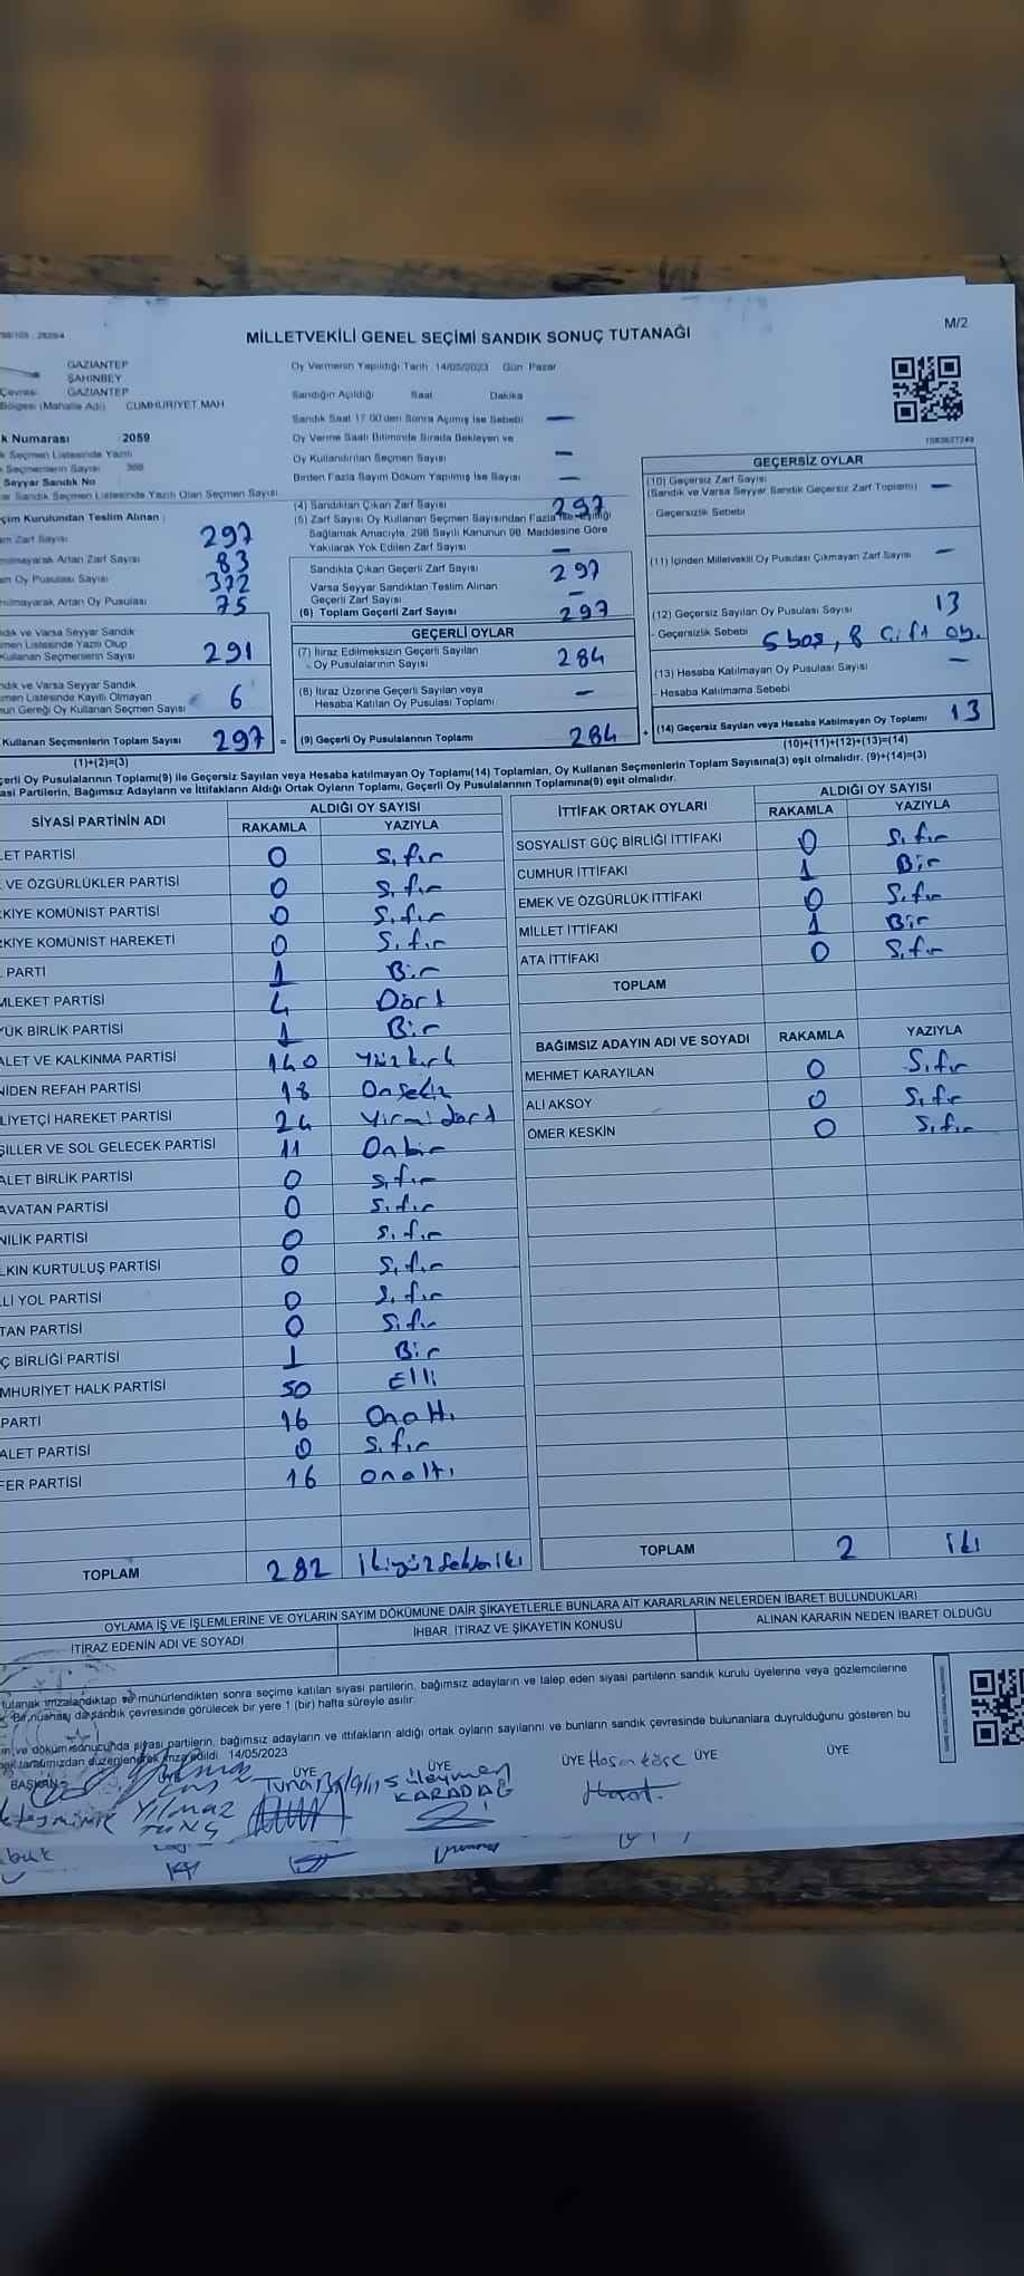 M/2
MİLLETVEKİLİ GENEL SEÇİMİ SANDIK SONUÇ TUTANAĞI
GAZİANTEP
ŞAHİNBEY
GAZİANTEP
Bölgesi (Mahalle Adı) CUMHURİYET MAH
k Numarası 2059
k Seçmen Listesinde Yazılı
Seçmenlerin Sayısı
Seyyar Sandık No
ar Sandık Seçmen Listesinde Yazılı Olan Seçmen Sayısı
çim Kurulundan Teslim Alınan
Zarf Sayısı 297
mayarak Artan Zarf Sayısı 83
Oy Pusulası Sayısı 372
mayarak Artan Oy Pusulası 75
dık ve Varsa Seyyar Sandık
men Listesinde Yazılı Olup
Kullanan Seçmenlerin Sayısı 291
ndık ve Varsa Seyyar Sandık
men Listesinde Kayıtlı Olmayan
un Gereği Oy Kullanan Seçmen Sayısı 6
Kullanan Seçmenlerin Toplam Sayısı 297 =
(1)+(2)=(3)
Oy Vermenin Yapıldığı Tarih 14/05/2023 Gün Pazar
Sandığın Açıldığı Saat Dakika
Sandık Saat 17.00'den Sonra Açılmış İse Sebebi —
Oy Verme Saati Bitiminde Sırada Bekleyen ve
Oy Kullandırılan Seçmen Sayısı —
Birden Fazla Sayım Döküm Yapılmış İse Sayısı —
(4) Sandıktan Çıkan Zarf Sayısı 297
(5) Zarf Sayısı Oy Kullanan Seçmen Sayısından Fazla İse Eşitliği
Sağlamak Amacıyla, 298 Sayılı Kanunun 98. Maddesine Göre
Yakılarak Yok Edilen Zarf Sayısı —
Sandıkta Çıkan Geçerli Zarf Sayısı 297
Varsa Seyyar Sandıktan Teslim Alınan
Geçerli Zarf Sayısı —
(6) Toplam Geçerli Zarf Sayısı 297
GEÇERLİ OYLAR
(7) İtiraz Edilmeksizin Geçerli Sayılan
Oy Pusulalarının Sayısı 284
(8) İtiraz Üzerine Geçerli Sayılan veya
Hesaba Katılan Oy Pusulası Toplamı —
(9) Geçerli Oy Pusulalarının Toplamı 284 +
GEÇERSİZ OYLAR
(10) Geçersiz Zarf Sayısı
(Sandık ve Varsa Seyyar Sandık Geçersiz Zarf Toplamı) —
Geçersizlik Sebebi
(11) İçinden Milletvekili Oy Pusulası Çıkmayan Zarf Sayısı —
(12) Geçersiz Sayılan Oy Pusulası Sayısı 13
- Geçersizlik Sebebi 5 boş, 8 Çift oy.
(13) Hesaba Katılmayan Oy Pusulası Sayısı —
- Hesaba Katılmama Sebebi
(14) Geçersiz Sayılan veya Hesaba Katılmayan Oy Toplamı 13
(10)+(11)+(12)+(13)=(14)
çerli Oy Pusulalarının Toplamı(9) ile Geçersiz Sayılan veya Hesaba katılmayan Oy Toplamı(14) Toplamları, Oy Kullanan Seçmenlerin Toplam Sayısına(3) eşit olmalıdır. (9)+(14)=(3)
asi Partilerin, Bağımsız Adayların ve İttifakların Aldığı Ortak Oyların Toplamı, Geçerli Oy Pusulalarının Toplamına(9) eşit olmalıdır.
SİYASİ PARTİNİN ADI ALDIĞI OY SAYISI
RAKAMLA YAZIYLA
LET PARTİSİ 0 Sıfır
VE ÖZGÜRLÜKLER PARTİSİ 0 Sıfır
KİYE KOMÜNİST PARTİSİ 0 Sıfır
KİYE KOMÜNİST HAREKETİ 0 Sıfır
PARTİ 1 Bir
MLEKET PARTİSİ 4 Dört
ÜK BİRLİK PARTİSİ 1 Bir
ALET VE KALKINMA PARTİSİ 140 Yüzkırk
NİDEN REFAH PARTİSİ 18 Onsekiz
LİYETÇİ HAREKET PARTİSİ 24 Yirmidört
ŞİLLER VE SOL GELECEK PARTİSİ 11 Onbir
ALET BİRLİK PARTİSİ 0 Sıfır
AVATAN PARTİSİ 0 Sıfır
NİLİK PARTİSİ 0 Sıfır
LKIN KURTULUŞ PARTİSİ 0 Sıfır
LLİ YOL PARTİSİ 0 Sıfır
TAN PARTİSİ 0 Sıfır
Ç BİRLİĞİ PARTİSİ 1 Bir
MHURİYET HALK PARTİSİ 50 Elli
PARTİ 16 Onaltı
ALET PARTİSİ 0 Sıfır
FER PARTİSİ 16 onaltı
TOPLAM 282 İkiyüzseksen iki
İTTİFAK ORTAK OYLARI ALDIĞI OY SAYISI
RAKAMLA YAZIYLA
SOSYALİST GÜÇ BİRLİĞİ İTTİFAKI 0 Sıfır
CUMHUR İTTİFAKI 1 Bir
EMEK VE ÖZGÜRLÜK İTTİFAKI 0 Sıfır
MİLLET İTTİFAKI 1 Bir
ATA İTTİFAKI 0 Sıfır
TOPLAM
BAĞIMSIZ ADAYIN ADI VE SOYADI RAKAMLA YAZIYLA
MEHMET KARAYILAN 0 Sıfır
ALİ AKSOY 0 Sıfır
ÖMER KESKİN 0 Sıfır
TOPLAM 2 iki
OYLAMA İŞ VE İŞLEMLERİNE VE OYLARIN SAYIM DÖKÜMÜNE DAİR ŞİKAYETLERLE BUNLARA AİT KARARLARIN NELERDEN İBARET BULUNDUKLARI
İTİRAZ EDENİN ADI VE SOYADI İHBAR, İTİRAZ VE ŞİKAYETİN KONUSU ALINAN KARARIN NEDEN İBARET OLDUĞU
tutanak imzalandıktan ve mühürlendikten sonra seçime katılan siyasi partilerin, bağımsız adayların ve talep eden siyasi partilerin sandık kurulu üyelerine veya gözlemcilerine
Bir nüshası da sandık çevresinde görülecek bir yere 1 (bir) hafta süreyle asılır.
ve döküm sonucunda siyasi partilerin, bağımsız adayların ve ittifakların aldığı ortak oyların sayılarını ve bunların sandık çevresinde bulunanlara duyrulduğunu gösteren bu
tarafımızdan düzenlenerek imza edildi. 14/05/2023
BAŞKAN ÜYE ÜYE ÜYE ÜYE ÜYE
Yılmaz TUNÇ
Süleyman KARADAĞ
Hasan Köse